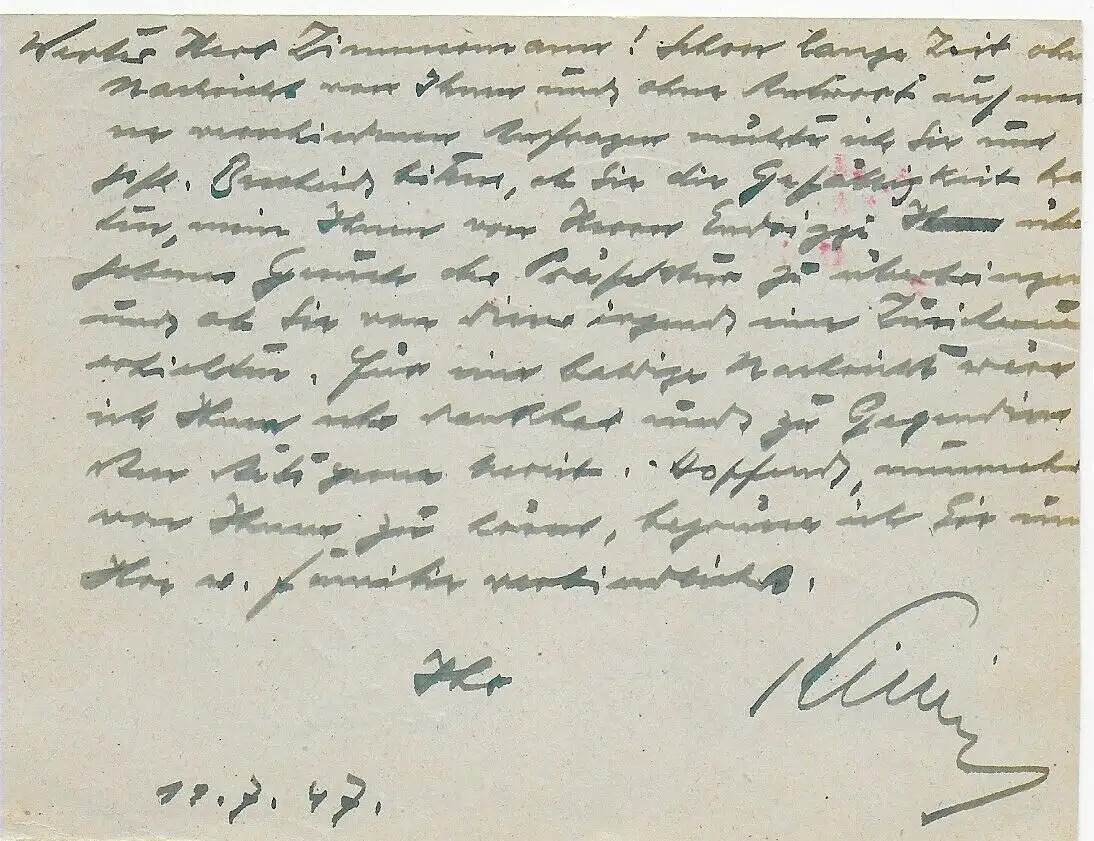 Werter Herr Zimmermann! Schon lange Zeit ohn
Nachricht von Ihnen und ohne Antwort auf mei
ne verschiedenen Anfragen möchte ich Sie um
gefl. Bescheid bitten, ob Sie die Gefälligkeit ha
ten, mein Ihnen von Herrn über
Gesuch der Präfektur zu überbringen
und ob Sie von dieser irgend eine
erhielten. Für eine baldige Nachricht wäre
ich Ihnen sehr dankbar und zu Gegendien
sten stets gerne bereit. Hoffend, nunmehr
von Ihnen zu hören, begrüsse ich Sie un
Ihre w. Familie verbindlichst.
Ihr
7. 47.